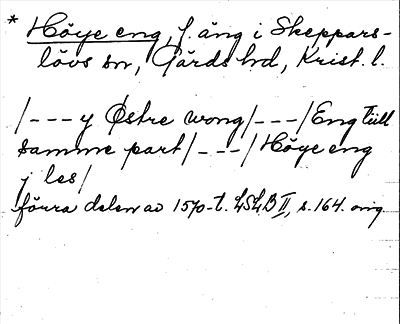 * Höye eng, f. äng i Skeppars-
lövs sn, Gärds hd, Krist. l.
/---y Østre wong/---/Eng till
samme part/---/Höye eng
j les/
förra delen av 1570-t. LSLB II, s. 164. orig.